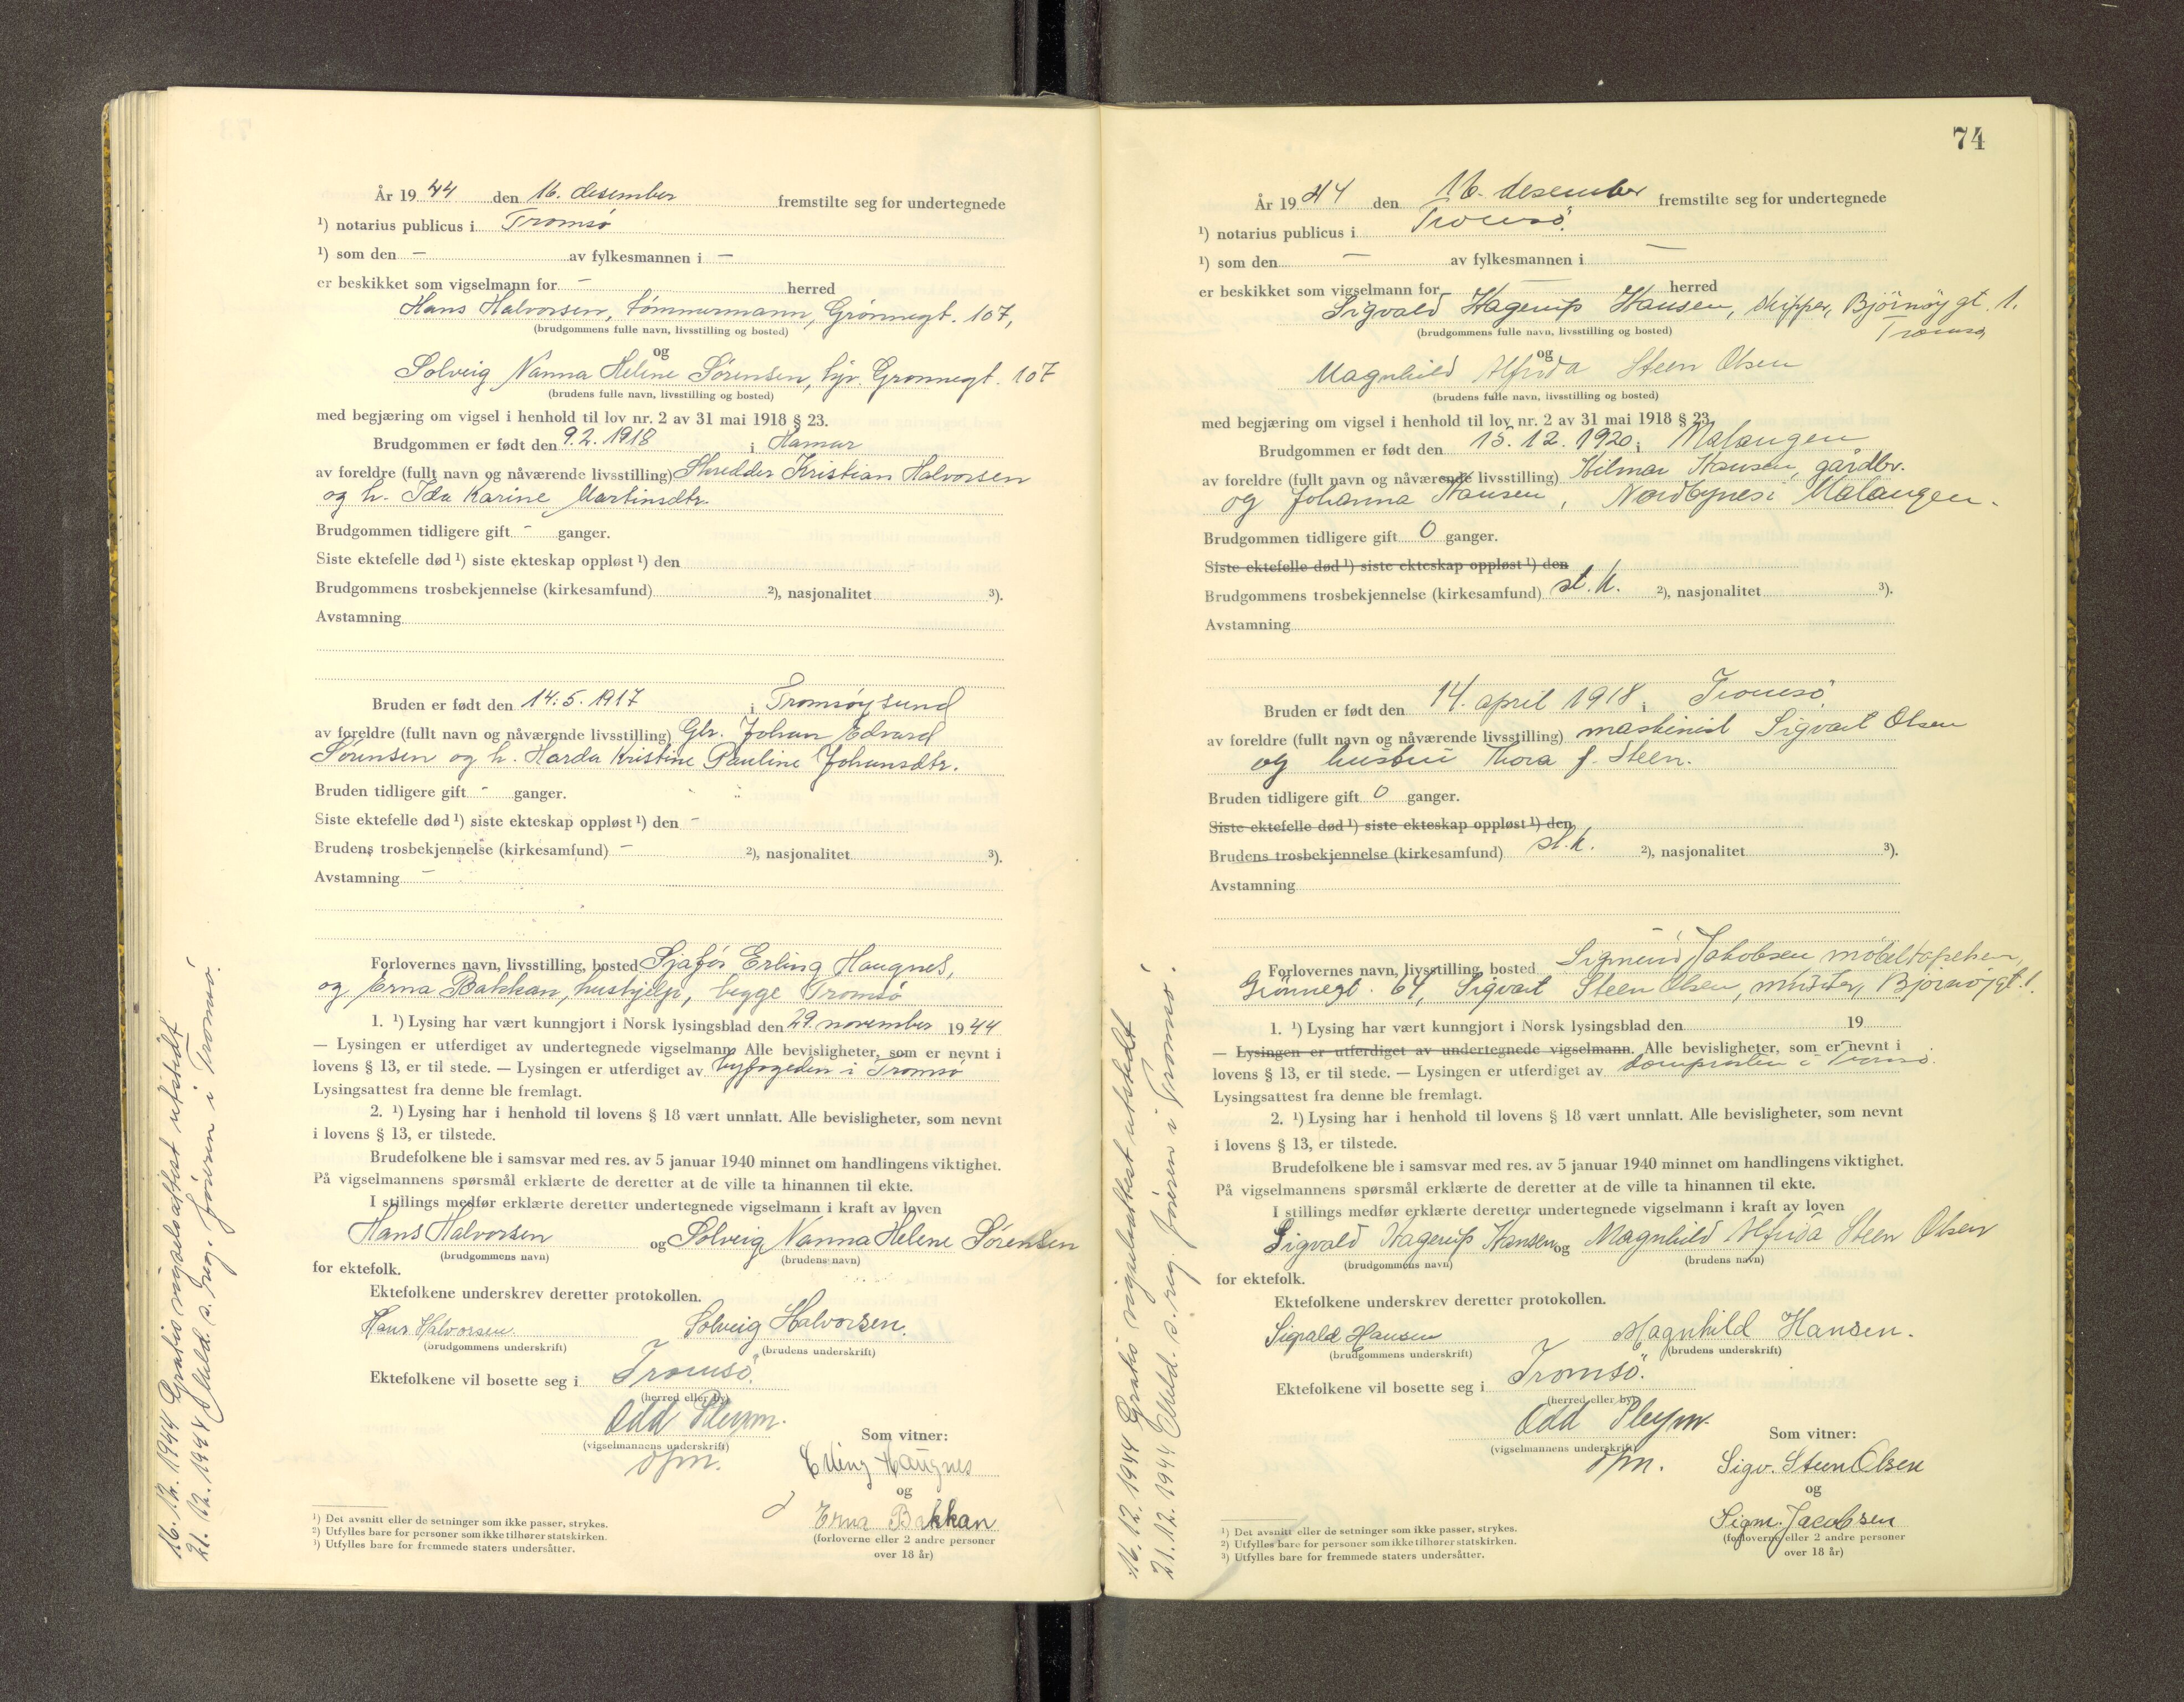 År 1944 den 16. desember fremstilte seg for undertegnede
¹) notarius publicus i Tromsø
¹) som den – av fylkesmannen i –
er beskikket som vigselmann for – herred
Hans Halvorsen, tømmermann, Grønnegt. 107,
(brudgommens fulle navn, livsstilling og bosted)
og
Solveig Nanna Helene Sørensen, Grønnegt. 107
(brudens fulle navn, livsstilling og bosted)
med begjæring om vigsel i henhold til lov nr. 2 av 31 mai 1918 § 23.
Brudgommen er født den 9.2.1918 i Hamar
av foreldre (fullt navn og nåværende livsstilling) Skredder Kristian Halvorsen
og h. Ida Karine Martinsdtr.
Brudgommen tidligere gift - ganger.
Siste ektefelle død ¹) siste ekteskap oppløst ¹) den
Brudgommens trosbekjennelse (kirkesamfund) ²), nasjonalitet ³).
Avstamning
Bruden er født den 14.5.1917 i Tromsøysund
av foreldre (fullt navn og nåværende livsstilling) Gbr. Johan Edvard
Sørensen og h. Harda Kristine Pauline Johansdtr.
Bruden tidligere gift - ganger.
Siste ektefelle død ¹) siste ekteskap oppløst ¹) den -
Brudens trosbekjennelse (kirkesamfund) – ²), nasjonalitet ³).
Avstamning –
Forlovernes navn, livsstilling, bosted Sjafør Erling Haugnes,
og Erna Bakkan, hushjelp, begge Tromsø
1. ¹) Lysing har vært kunngjort i Norsk lysingsblad den 29. november 1944
— Lysingen er utferdiget av undertegnede vigselmann. Alle bevisligheter, som er nevnt i
lovens § 13, er til stede. — Lysingen er utferdiget av byfogeden i Tromsø
Lysingsattest fra denne ble fremlagt.
2. ¹) Lysing har i henhold til lovens § 18 vært unnlatt. Alle bevisligheter, som nevnt
i lovens § 13, er tilstede.
Brudefolkene ble i samsvar med res. av 5 januar 1940 minnet om handlingens viktighet.
På vigselmannens spørsmål erklærte de deretter at de ville ta hinannen til ekte.
I stillings medfør erklærte deretter undertegnede vigselmann i kraft av loven
Hans Halvorsen og Solveig Nanna Helene Sørensen
(brudgommens navn) (brudens navn)
for ektefolk.
Ektefolkene underskrev deretter protokollen.
Hans Halvorsen. Solveig Halvorsen.
(brudgommens underskrift) (brudens underskrift)
Ektefolkene vil bosette seg i Tromsö.
(herred eller by)
Odd Pleym.
(vigselmannens underskrift)
Som vitner:
Erling Haugnes
og
Erna Bakkan
(forloverne eller 2 andre personer
over 18 år)
¹) Det avsnitt eller de setninger som ikke passer, strykes.
²) Utfylles bare for personer som ikke tilhører statskirken.
³) Utfylles bare for fremmede staters undersåtter.
16.12.1944 Gratis vigselsattest utstedt.
21.12.1944 s. reg. föreren i Tromsö.
74
År 1944 den 16. desember fremstilte seg for undertegnede
¹) notarius publicus i Tromsö.
¹) som den – av fylkesmannen i –
er beskikket som vigselmann for – herred
Sigvald Hagerup Hansen, skipper, Bjørnøygt. 1.
Tromsø
(brudgommens fulle navn, livsstilling og bosted)
og
Magnhild Alfrida Steen Olsen
(brudens fulle navn, livsstilling og bosted)
med begjæring om vigsel i henhold til lov nr. 2 av 31 mai 1918 § 23.
Brudgommen er født den 15.12.1920 i Malangen
av foreldre (fullt navn og nåværende livsstilling) Hilmar Hansen, gårdbr.
og Johanna Hansen, Nordbynes i Malangen.
Brudgommen tidligere gift 0 ganger.
Siste ektefelle død ¹) siste ekteskap oppløst ¹) den
Brudgommens trosbekjennelse (kirkesamfund) st.k. ²), nasjonalitet ³).
Avstamning
Bruden er født den 14. april 1918 i Tromsö
av foreldre (fullt navn og nåværende livsstilling) maskinist Sigvart Olsen
og hustru Thora f. Steen.
Bruden tidligere gift 0 ganger.
Siste ektefelle død ¹) siste ekteskap oppløst ¹) den
Brudens trosbekjennelse (kirkesamfund) st.k. ²), nasjonalitet ³).
Avstamning
Forlovernes navn, livsstilling, bosted Sigmund Jakobsen möbeltapetserer,
Grønnegt. 64, Sigvart Steen Olsen, Bjørnøygt. 1.
1. ¹) Lysing har vært kunngjort i Norsk lysingsblad den 19
— Lysingen er utferdiget av undertegnede vigselmann. Alle bevisligheter, som er nevnt i
lovens § 13, er til stede. — Lysingen er utferdiget av domprosten i Tromsø.
Lysingsattest fra denne ble fremlagt.
2. ¹) Lysing har i henhold til lovens § 18 vært unnlatt. Alle bevisligheter, som nevnt
i lovens § 13, er tilstede.
Brudefolkene ble i samsvar med res. av 5 januar 1940 minnet om handlingens viktighet.
På vigselmannens spørsmål erklærte de deretter at de ville ta hinannen til ekte.
I stillings medfør erklærte deretter undertegnede vigselmann i kraft av loven
Sigvald Hagerup Hansen og Magnhild Alfrida Steen Olsen
(brudgommens navn) (brudens navn)
for ektefolk.
Ektefolkene underskrev deretter protokollen.
Sigvald Hansen Magnhild Hansen.
(brudgommens underskrift) (brudens underskrift)
Ektefolkene vil bosette seg i Tromsö.
(herred eller by)
Odd Pleym
(vigselmannens underskrift)
Som vitner:
Sigv. Steen Olsen
og
Sigm. Jacobsen
(forloverne eller 2 andre personer
over 18 år)
¹) Det avsnitt eller de setninger som ikke passer, strykes.
²) Utfylles bare for personer som ikke tilhører statskirken.
³) Utfylles bare for fremmede staters undersåtter.
16.12.1944 Gratis vigselsattest utstedt
21.12.1944 s. reg. föreren i Tromsö.